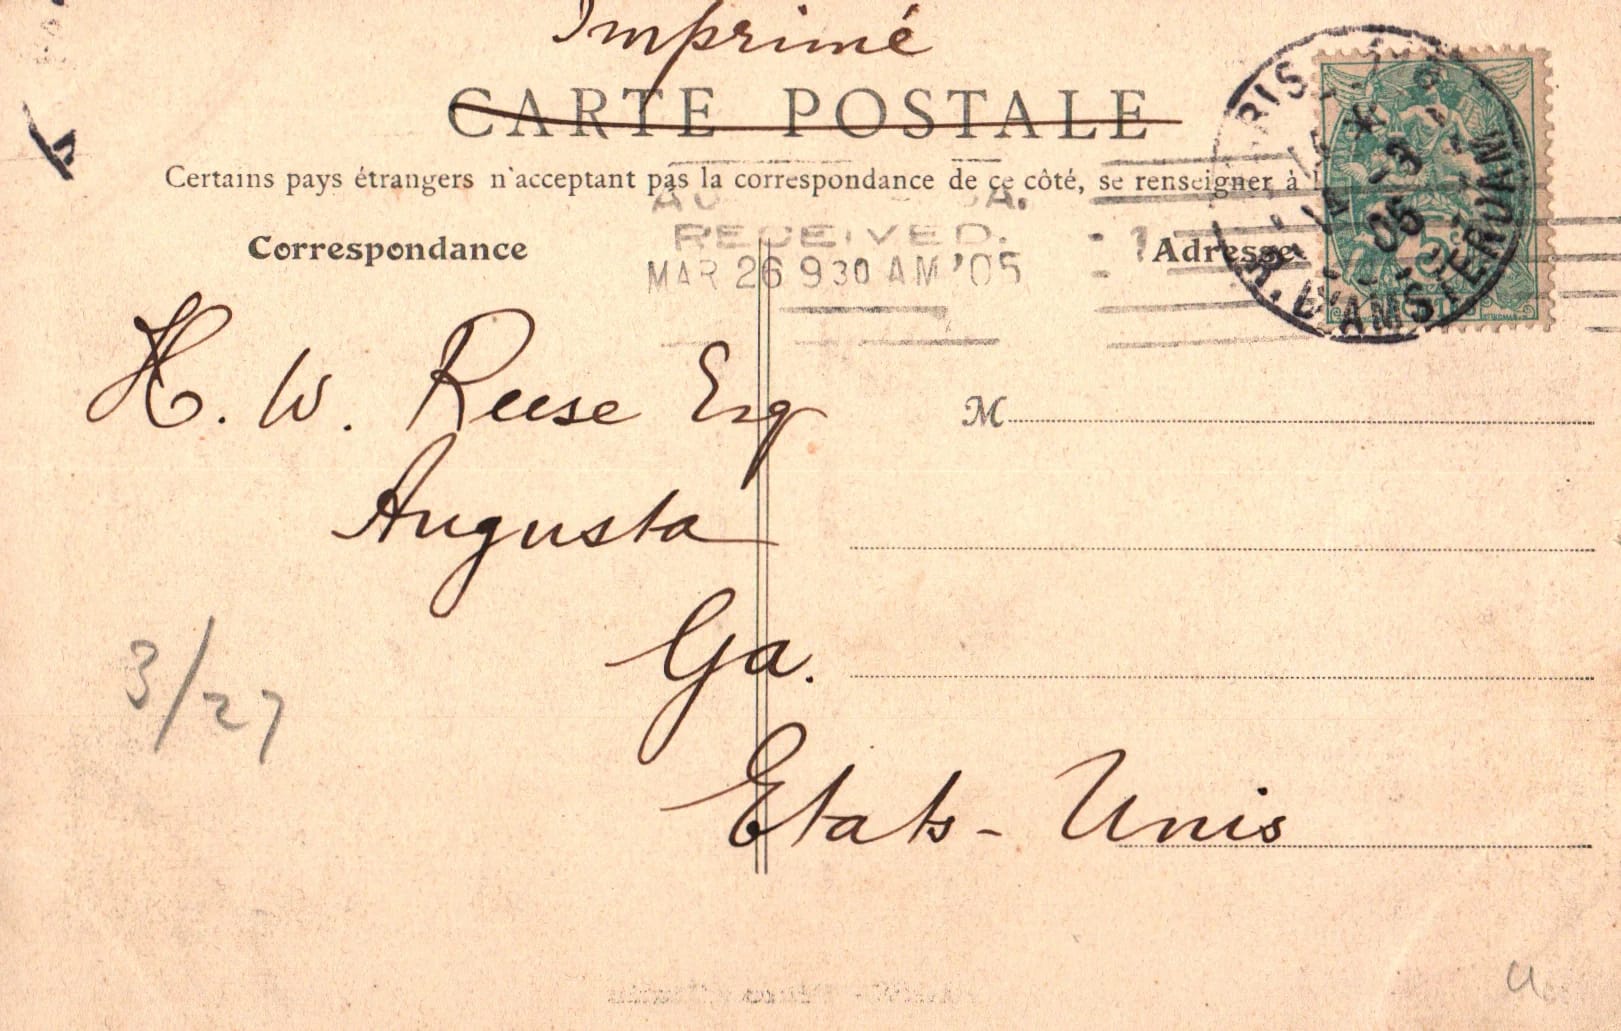 Imprimé
CARTE POSTALE
Certains pays étrangers n'acceptent pas la correspondance de ce côté, se renseigner à
RECEIVED.
MAR 26 9 30 AM '05
1
Correspondance
Adresse
R. D'AMSTERDAM
05
H. W. Reese Esq
M
Augusta
Ga.
3/27
Etats-Unis